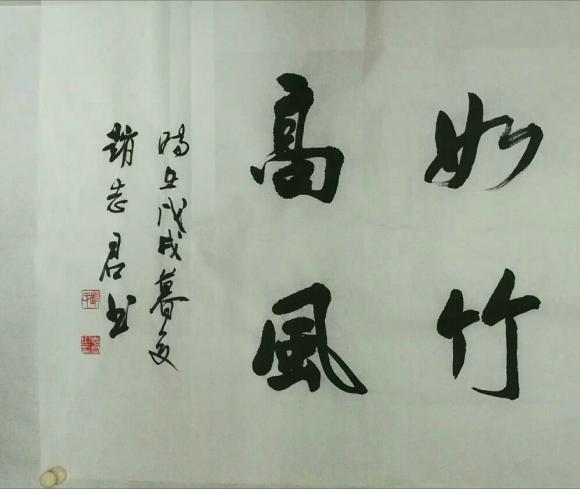 如竹
高風
時在戊戌暮夏
趙志君書